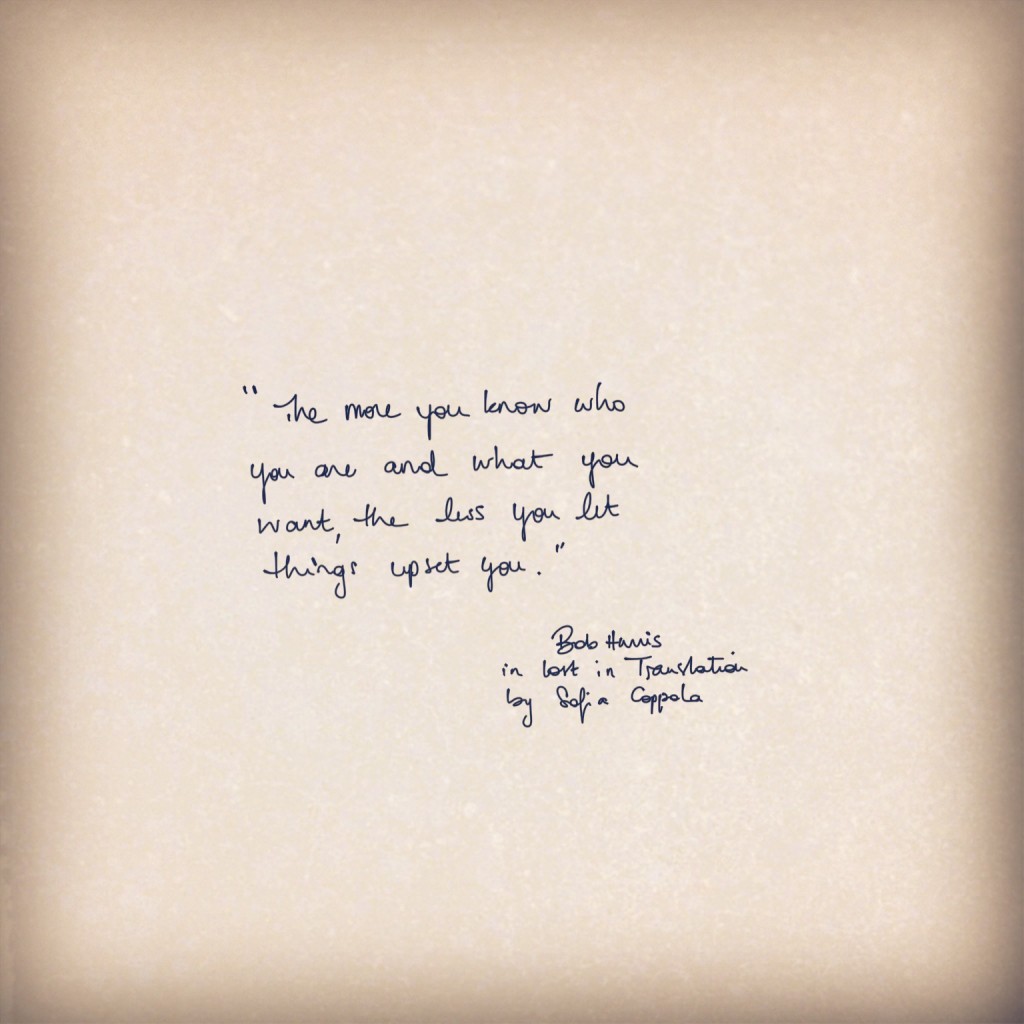 "The more you know who
you are and what you
want, the less you let
things upset you."
Bob Harris
in Lost in Translation
by Sofia Coppola